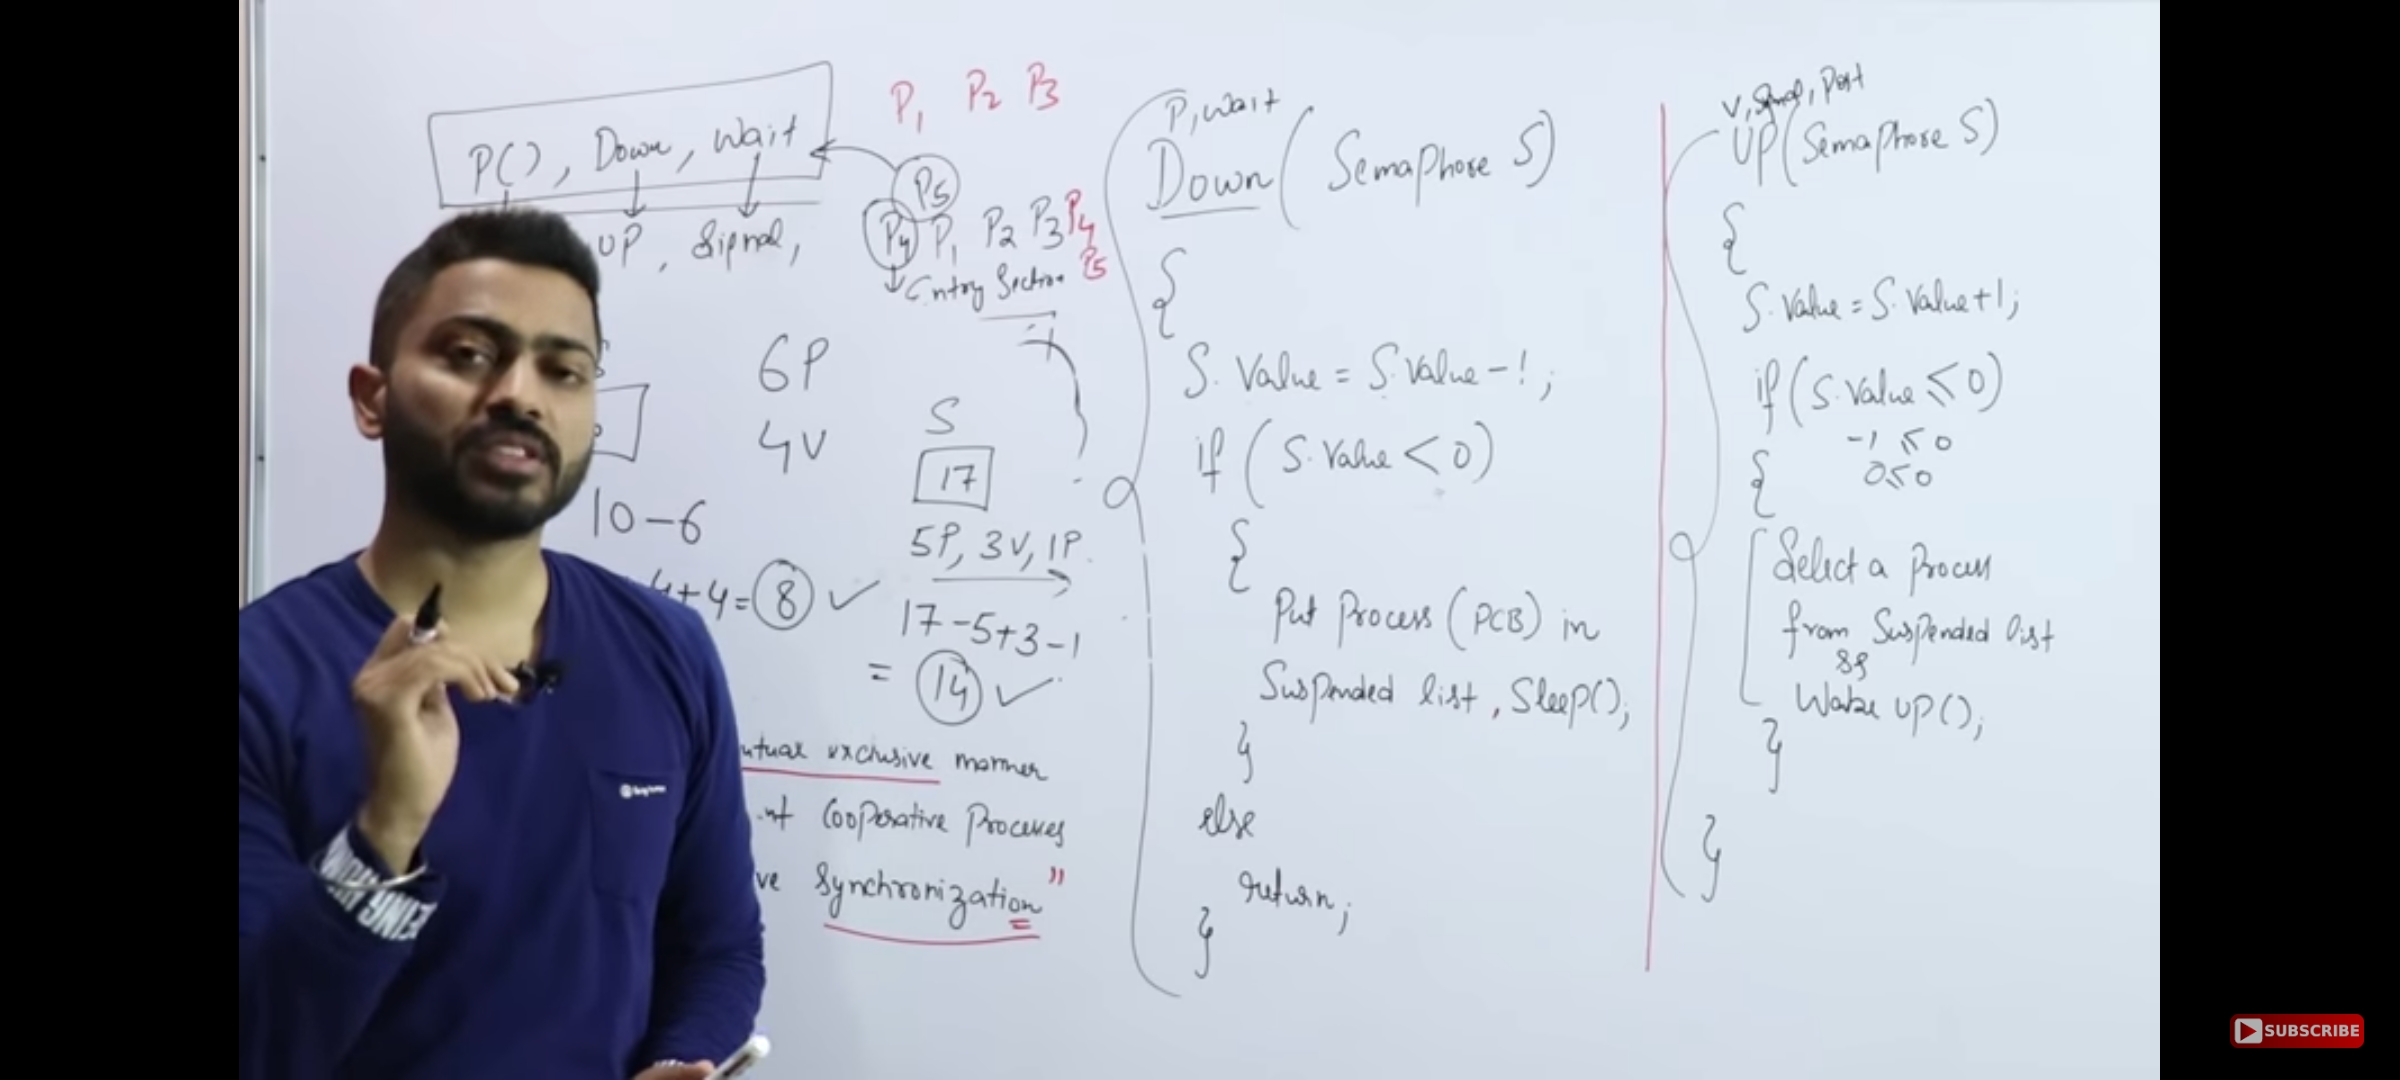 P1 P2 P3
P(), Down, Wait
P5
UP, Signal,
P4 P1 P2 P3 P4
P5
Entry Section
6P
4V
10-6
4+4=8 ✓
S
17
5P, 3V, 1P.
17-5+3-1
= 14 ✓
utual exclusive manner
Cooperative Processes
ve Synchronization"
P, wait
Down (Semaphore S)
{
S. Value = S. Value-1;
if (S. Value < 0)
{
Put Process (PCB) in
Suspended list, Sleep();
}
else
return;
}
V, Signal, Post
UP(Semaphore S)
{
S. Value = S. Value+1;
if (S. Value ≤ 0)
-1 ≤ 0
0≤0
{
Select a Process
from Suspended list
Wake up();
}
}
SUBSCRIBE